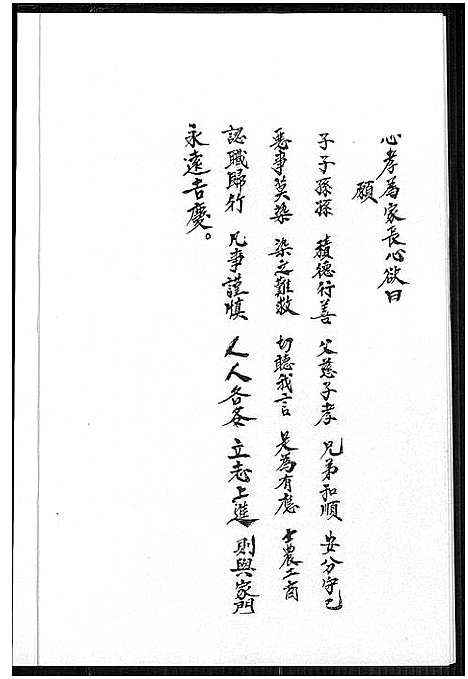 心孝為家長心欲曰
願
子子孫孫 積德行善 父慈子孝 兄弟和順 安分守己
惡事莫染 染之難救 切聽我言 是為有應 士農工商
認職歸行 凡事謹慎 人人各各 立志上進 則與家門
永遠吉慶。